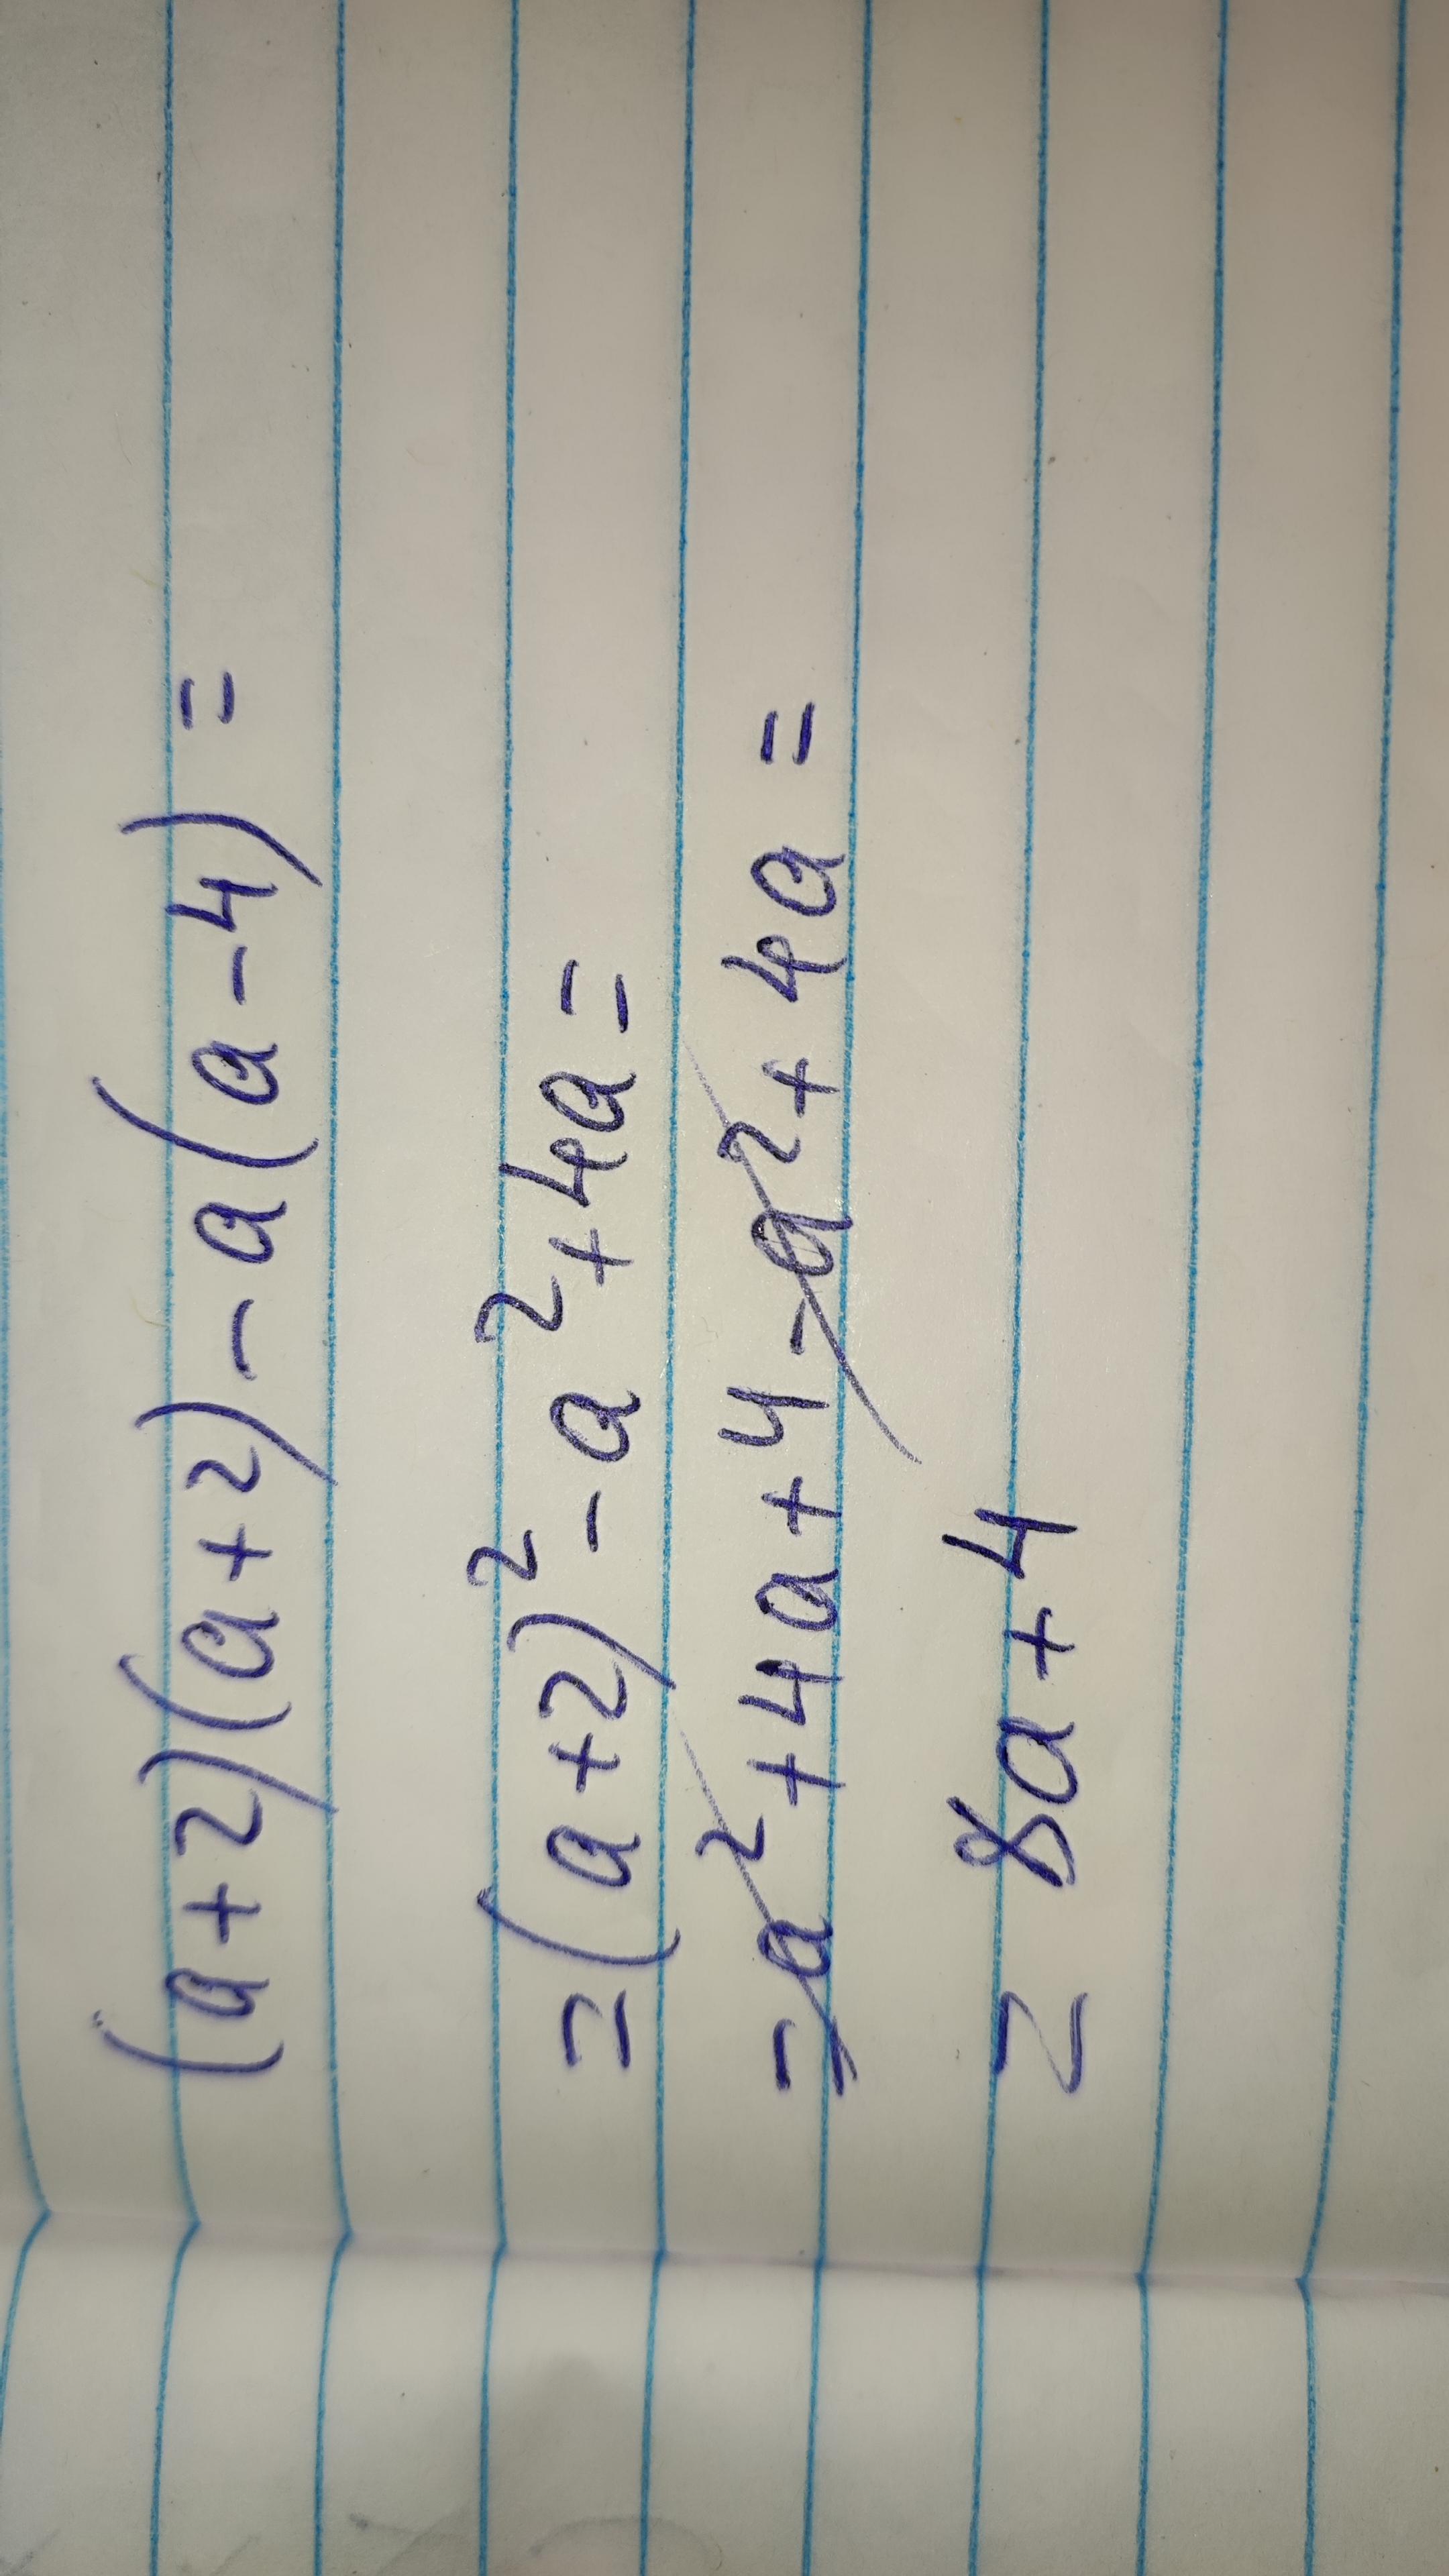 (a+2)(a+2)-a(a-4)=
=(a+2)²-a²+4a=
=a²+4a+4-a²+4a=
= 8a+4